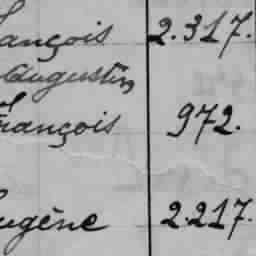 François 2.317.
Augustin
François 972.
Eugène 2.217.